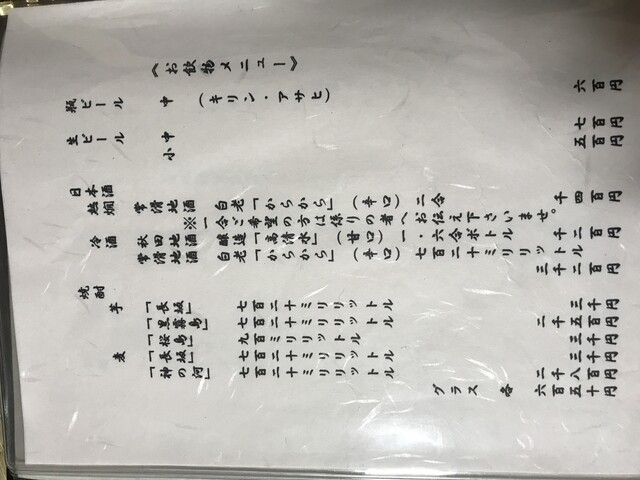 《お飲物メニュー》
瓶ビール 中 (キリン・アサヒ) 六百円
生ビール 中 七百円
小 五百円
日本酒
熱燗 常滑地酒 白老「からから」 (辛口) 二合 千四百円
※一合ご希望の方は係りの者へお伝え下さいませ。
冷酒 秋田地酒 醸造「高清水」 (甘口) 一・六合ボトル 千二百円
常滑地酒 白老「からから」 (辛口) 七百二十ミリリットル 三千二百円
焼酎
芋 「長城」 七百二十ミリリットル 三千円
「黒霧島」 七百二十ミリリットル 二千五百円
「桜島」 九百ミリリットル 三千円
麦 「長城」 七百二十ミリリットル 三千円
「神の河」 七百二十ミリリットル 二千八百円
グラス 各 六百五十円